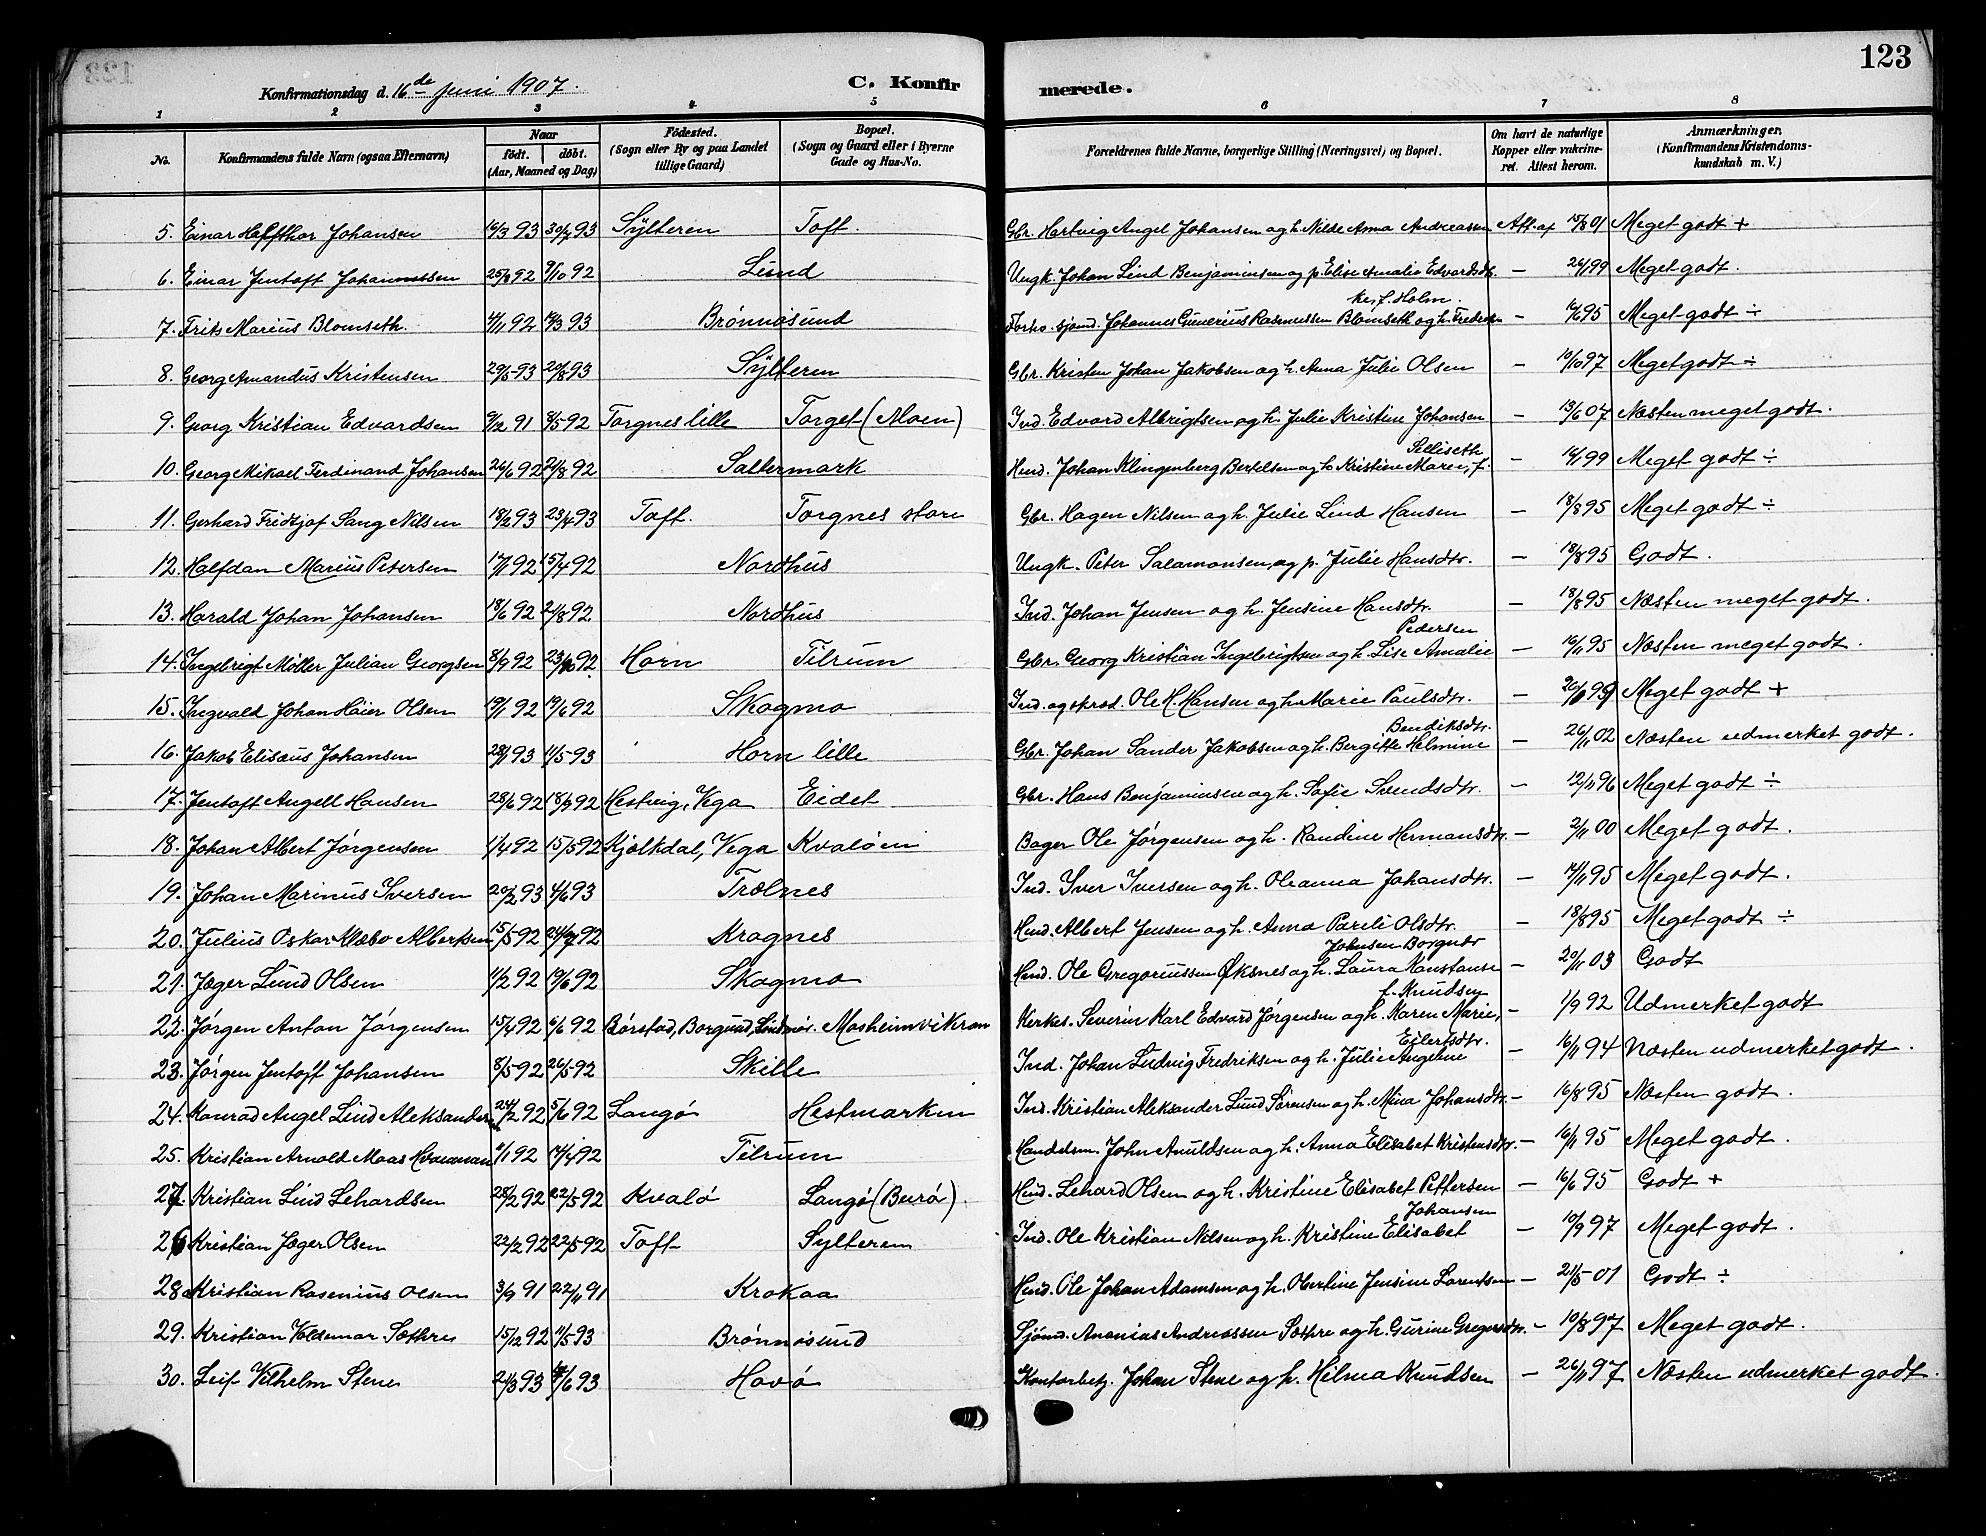 123
Konfirmationsdag d. 16de Juni 1907. C. Konfirmerede.
1 2 3 4 5 6 7 8
No. Konfirmandens fulde Navn (ogsaa Efternavn) Naar født. døbt. (Aar, Maaned og Dag) Fødested. (Sogn eller By og paa Landet tillige Gaard) Bopæl. (Sogn og Gaard eller i Byerne Gade og Hus-No. Forældrenes fulde Navne, borgerlige Stilling (Næringsvei) og Bopæl. Om havt de naturlige Kopper eller vakcineret. Attest herom. Anmærkninger. (Konfirmandens Kristendomskundskab m. V.)
5. Einar Haffthor Johansen 93 93 Sylteren Toft. Gbr. Hartvig Angel Johansen og h. Nilde Anna Andreassen Att. af 15/8 01 Meget godt +
6. Einar Jentoft Johannessen 25/8 92 9/10 92 Lund Ungk. Johan Lind Benjaminsen og p. Elise Amalie Edvardsdtr. — 99 Meget godt.
7. Frits Marius Blomseth. 4/11 92 93 Brønnøsund Forhv. sjømd. Johannes Gunerius Rasmussen Blomseth og h. Fredrikke, f. Holm. — 95 Meget godt ÷
8. Georg Amandus Kristensen 29/5 93 20/8 93 Sylteren Gbr. Kristen Johan Jakobsen og h. Anna Julie Olsen — 10/10 97 Meget godt ÷
9. Georg Kristian Edvardsen 9/12 91 8/5 92 Torgnes lille Torget (Moen) Ind. Edvard Albrigtsen og h. Julie Kristine Johansen — 13/6 07 Næsten meget godt.
10. Georg Mikael Ferdinand Johansen 26/6 92 21/8 92 Saltermark Hmd. Johan Klingenberg Bertelsen og h. Kristine Maree, f. Selliseth — 99 Meget godt ÷
11. Gerhard Fridtjof Sang Nilsen 18/2 93 23/4 93 Toft. Torgnes store Gbr. Hagen Nilsen og h. Julie Lind Hansen — 18/8 95 Meget godt ÷
12. Halfdan Marius Petersen 17/1 92 15/4 92 Nordhus Ungk. Peter Salamonsen og p. Julie Hansdtr. — 18/8 95 Godt.
13. Harald Johan Johansen 18/6 92 21/8 92 Nordhus Ind. Johan Jensen og h. Jensine Hansdtr. — 18/8 95 Næsten meget godt.
14. Ingebrigt Møller Julian Georgsen 8/9 92 92 Horn Tilrum Gbr. Georg Kristian Ingebrigtsen og h. Lise Amalie Pedersen — 16/11 95 Næsten meget godt.
15. Ingvald Johan Høier Olsen 19/1 92 19/6 92 Skogmo Ind. og skræd. Ole H. Hansen og h. Marie Paulsdtr. — Meget godt +
16. Jakob Elisæus Johansen 28/1 93 11/5 93 Horn lille Gbr. Johan Sander Jakobsen og h. Bergitte Helmine Bendiksdtr. — 26/11 02 Næsten udmerket godt.
17. Jentoft Angell Hansen 28/6 92 92 Hestvig, Vega Eidet Gbr. Hans Benjaminsen og h. Sofie Svendsdtr. — 12/11 96 Meget godt ÷
18. Johan Albert Jørgensen 1/4 92 15/5 92 Kjælkdal, Vega Kvaløen Bager Ole Jørgensen og h. Randine Hermansdtr. — 2/11 00 Meget godt.
19. Johan Marinus Iversen 20/2 93 4/6 93 Trælnes Ind. Iver Iversen og h. Oleanna Johansdtr. — 14/11 95 Meget godt.
20. Julius Oskar Albertsen 15/5 92 92 Krognes Hmd. Albert Jensen og h. Anna Pareli Olsdtr. — 18/8 95 Meget godt ÷
21. Jæger Lund Olsen 11/2 92 19/6 92 Skogmo Hmd. Ole Gregoriussen Øksnes og h. Laura Konstanse Johnsen — 20/11 03 Godt
22. Jørgen Anton Jørgensen 15/4 92 6/6 92 Børstad, Borgund, Søndmør. Mosheimvikran Kirkes. Severin Karl Edvard Jørgensen og h. Karen Marie, f. Knudsen — 1/9 92 Udmerket godt
23. Jørgen Jentoft Johansen 8/5 92 26/5 92 Skille Ind. Johan Ludvig Fredriksen og h. Julie Angeline Eilertsdtr. — 16/11 94 Næsten udmerket godt.
24. Konrad Angel Lind Aleksandersen 24/2 92 5/6 92 Langø Hestmarken Ind. Kristian Aleksander Lund Sørensen og h. Mina Johansdtr. — 16/8 95 Næsten godt.
25. Kristian Arnold Moas 11/1 92 92 Tilrum Handelsm. John Anuldsen og h. Anna Elisabet Kristensdtr. — 16/11 95 Meget godt.
27. Kristian Lind Lehardsen 28/2 92 22/5 92 Kvalø Langø (Burø). Hmd. Lehard Olsen og h. Kristine Elisabet Pettersen — 16/6 95 Godt +
26 Kristian Jæger Olsen 22/2 92 22/5 92 Toft Sylteren Ind. Ole Kristian Nilsen og h. Kristine Elisabet Johansen — 10/9 97 Meget godt.
28. Kristian Rasenius Olsen 3/9 91 22/11 91 Krokaa Hmd. Ole Johan Adamsen og h. Obertine Jensine Lorentsen — 21/5 01 Godt ÷
29. Kristian Valdemar Sæthre 15/12 92 11/5 93 Brønnøsund Sjømd. Ananias Andreassen Sæthre og h. Gurine Gregersdtr. — 10/8 97 Meget godt.
30. Leif Vilhelm Stene 2/3 93 93 Havø Kontorbetj. Johan Stene og h. Hilma Knudsen — 26/11 97 Næsten udmerket godt.